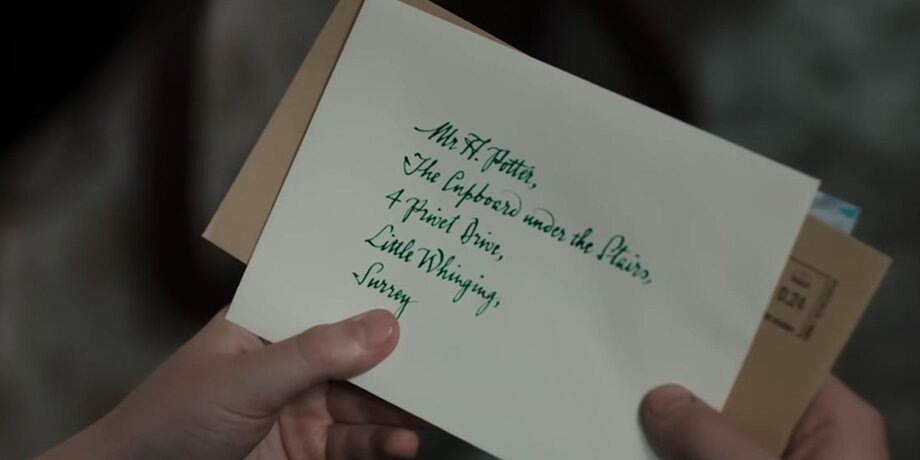 Mr H. Potter,
The Cupboard under the Stairs,
4 Privet Drive,
Little Whinging,
Surrey
0.24